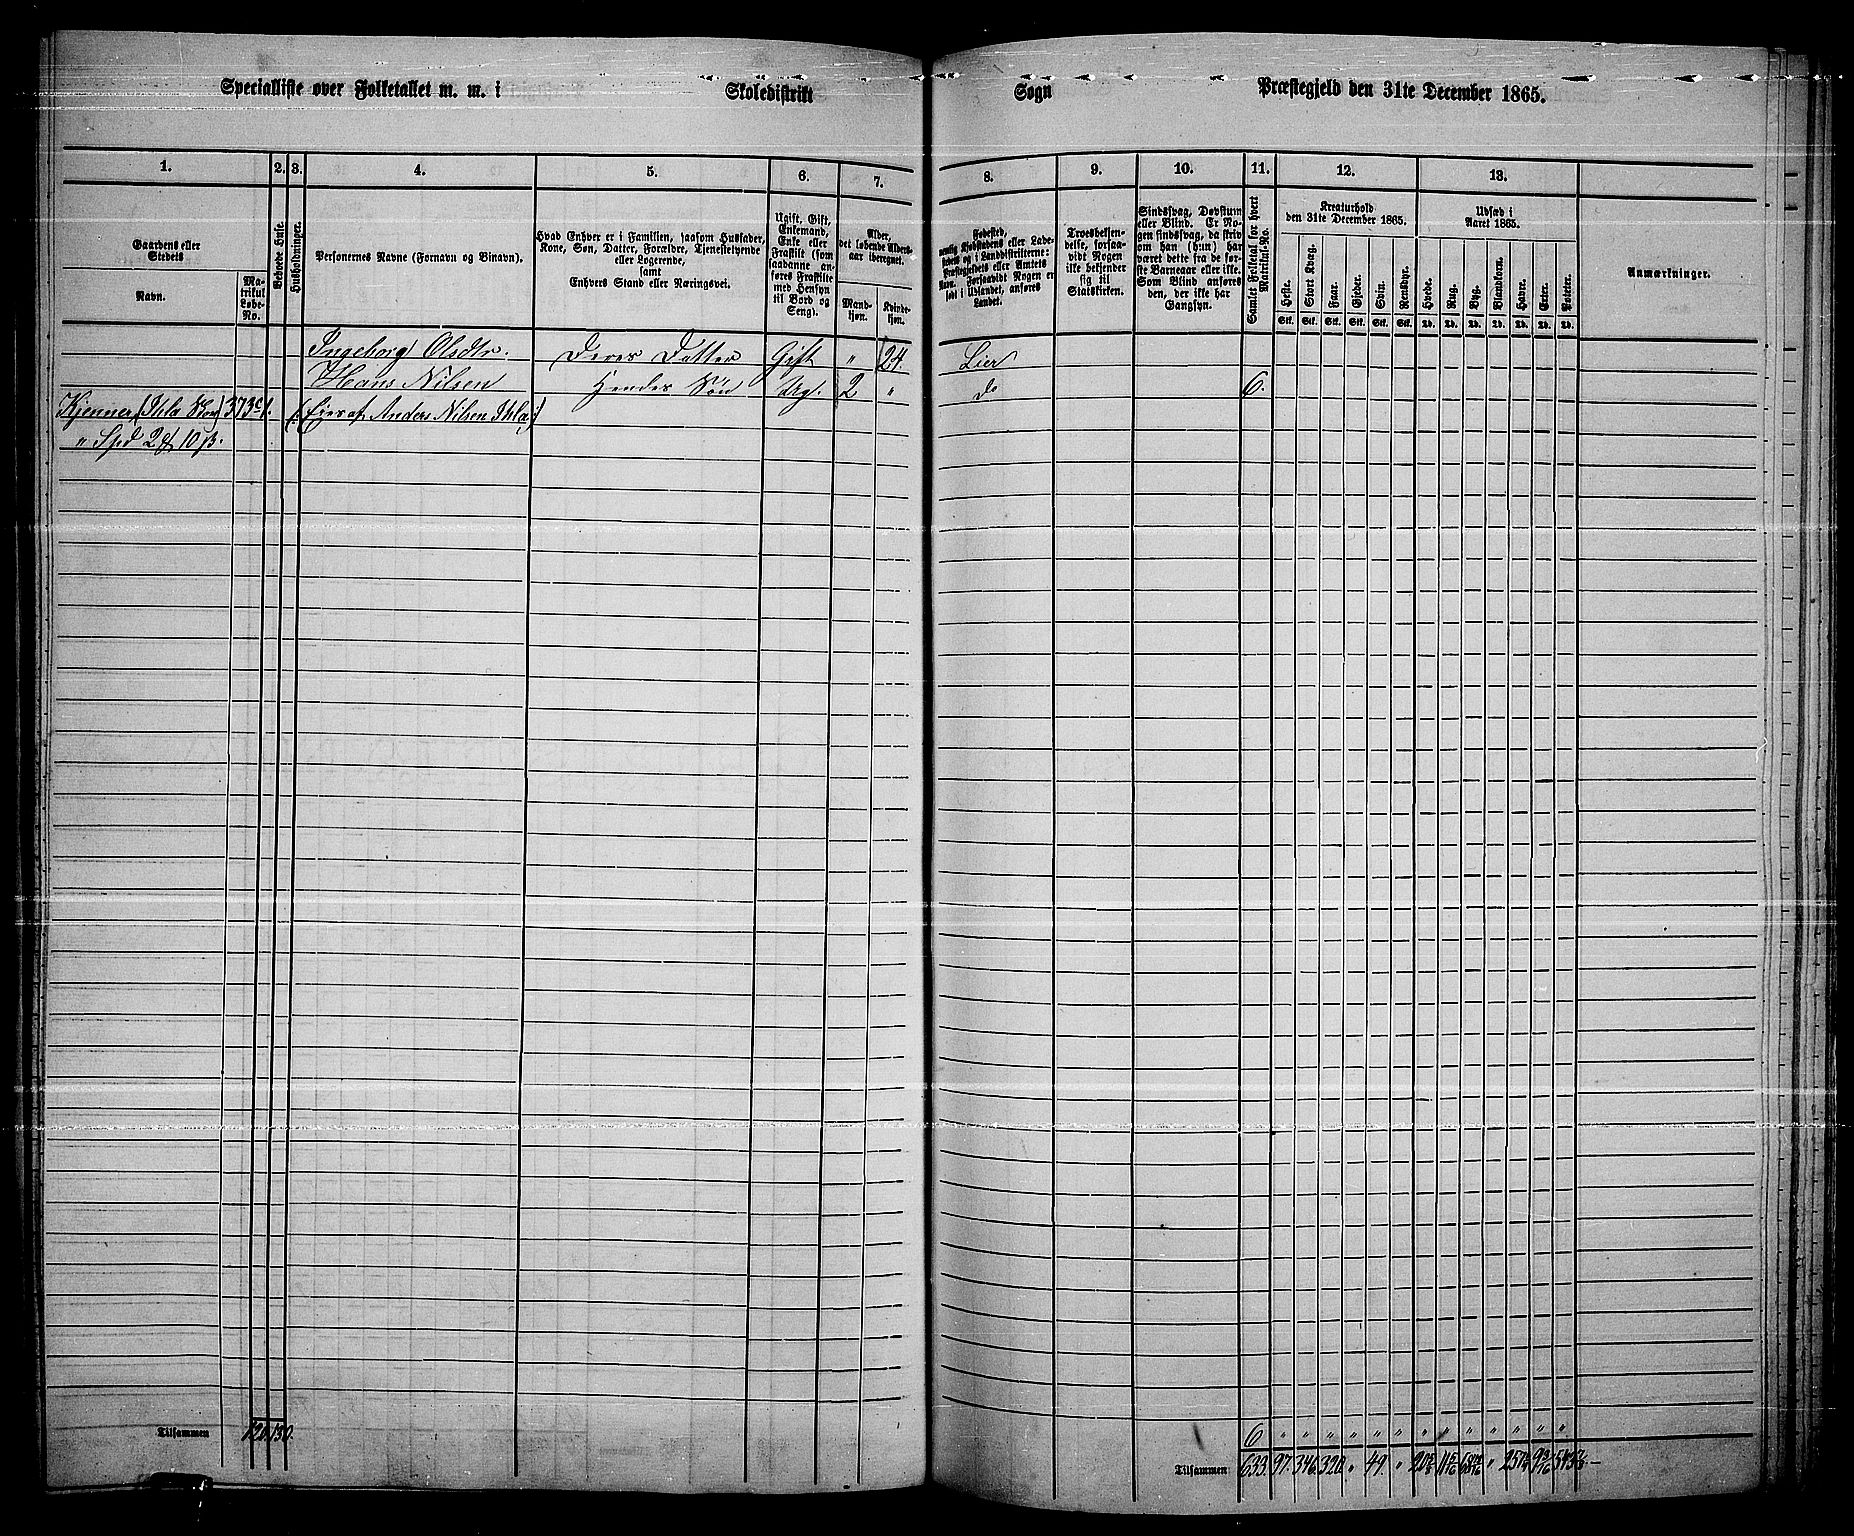 Specialliste over Folketallet m. m. i Skoledistrikt Sogn Præstegjeld den 31te December 1865.
1. 2. 3. 4. 5. 6. 7. 8. 9. 10. 11. 12. 13.
Gaardens eller Stedets
Navn.
Matrikul Løbe-No.
Beboede Huse.
Husholdninger.
Personernes Navne (Fornavn og Binavn).
Hvad Enhver er i Familien, saasom Husfader, Kone, Søn, Datter, Forældre, Tjenestetyende eller Logerende,
samt
Enhvers Stand eller Næringsvei.
Ugift, Gift, Enkemand, Enke eller Fraskilt (som saadanne anføres Fraskilte med Hensyn til Bord og Seng).
Alder, det løbende Alders-aar iberegnet.
Mandkjøn.
Kvindekjøn.
Fødested, nemlig Kjøbstadens eller Ladestedets og i Landdistrikterne: Præstegjeldets eller Amtets Navn. Forsaavidt Nogen er født i Udlandet, anføres Landet.
Troesbekjendelse, forsaavidt Nogen ikke bekjender sig til Statskirken.
Sindssvag, Døvstum eller Blind. Er Nogen sindssvag, da skriv om han (hun) har været dette fra de første Barneaar eller ikke. Som Blind anføres den, der ikke har Gangsyn.
Samlet Folketal for hvert Matrikuls-No.
Kreaturhold den 31te December 1865.
Heste. Stort Kvæg. Faar. Gjeder. Svin. Rensdyr.
Stk. Stk. Stk. Stk. Stk. Stk.
Udsæd i Aaret 1865.
Hvede. Rug. Byg. Blandkorn. Havre. Erter. Poteter.
Td. Td. Td. Td. Td. Td. Td.
Anmærkninger.
Ingeborg Olsdtr. Deres Datter Gift " 24. Lier
Hans Nilsen Hendes Søn Ug. 2 " do 6.
Kjenner 373 (Eies af Anders Nilsen Ihla)
" Spd 2 10 ß.
Tilsammen 120 130. 6 " " " " " " " " " " " " "
Tilsammen 633. 97. 346. 320. " 49. "